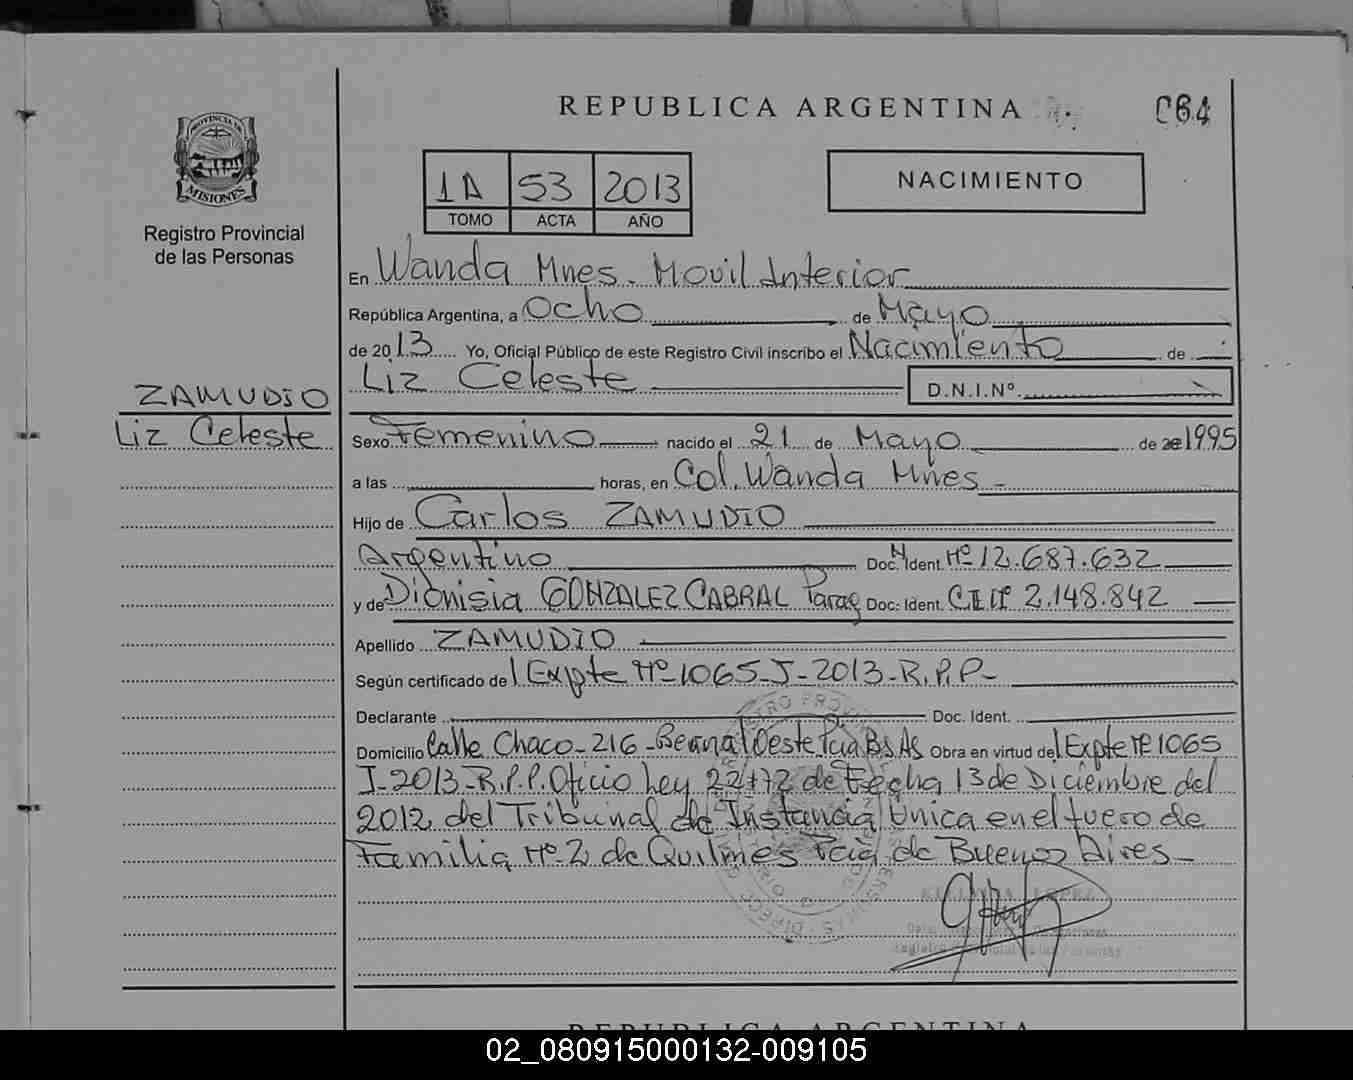 REPUBLICA ARGENTINA
064
PROVINCIA DE
MISIONES
Registro Provincial
de las Personas
1A 53 2013
TOMO ACTA AÑO
NACIMIENTO
En Wanda Mnes. Movil Interior
República Argentina, a Ocho de Mayo
de 2013 Yo, Oficial Público de este Registro Civil inscribo el Nacimiento de
Liz Celeste D.N.I.Nº
ZAMUDIO
Liz Celeste
Sexo Femenino nacido el 21 de Mayo de 1995
a las horas, en Col. Wanda Mnes -
Hijo de Carlos ZAMUDIO
Argentino Doc. Ident. Nº 12.687.632
y de Dionisia GONZALEZ CABRAL Parag Doc. Ident. C.I Nº 2.148.842
Apellido ZAMUDIO
Según certificado del Expte Nº 1065-J-2013-R.P.P-
Declarante Doc. Ident.
Domicilio Calle Chaco-216-Bernal Oeste Pcia Bs As Obra en virtud del Expte Nº 1065
J-2013-R.P.P. Oficio Ley 22172 de Fecha 13 de Diciembre del
2012 del Tribunal de Instancia Unica en el fuero de
Familia Nº 2 de Quilmes Pcia de Buenos Aires-
LOPEZ
REPUBLICA ARGENTINA
02_080915000132-009105